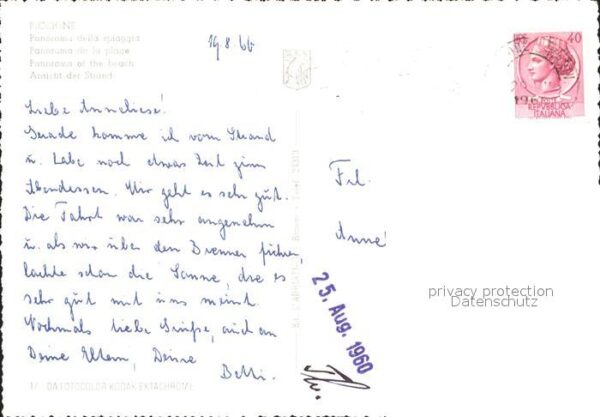 RICCIONE
Panorama della spiaggia
Panorama de la plage
Panorama of the beach
Ansicht der Strand
19.8.60
Liebe Anneliese!
Gerade komme ich vom Strand
u. habe noch etwas Zeit zum
Abendessen. Mir geht es sehr gut.
Die Fahrt war sehr angenehm
u. als wir über den Brenner fuhren,
lachte schon die Sonne, die es
sehr gut mit uns meint.
Nochmals liebe Grüße, auch an
Deine Eltern, Deine
Betti.
DACOTOCOLOR KODAK EKTACHROME
40
REPVBBLICA
ITALIANA
Frl.
Anne
25. Aug. 1960
privacy protection
Datenschutz